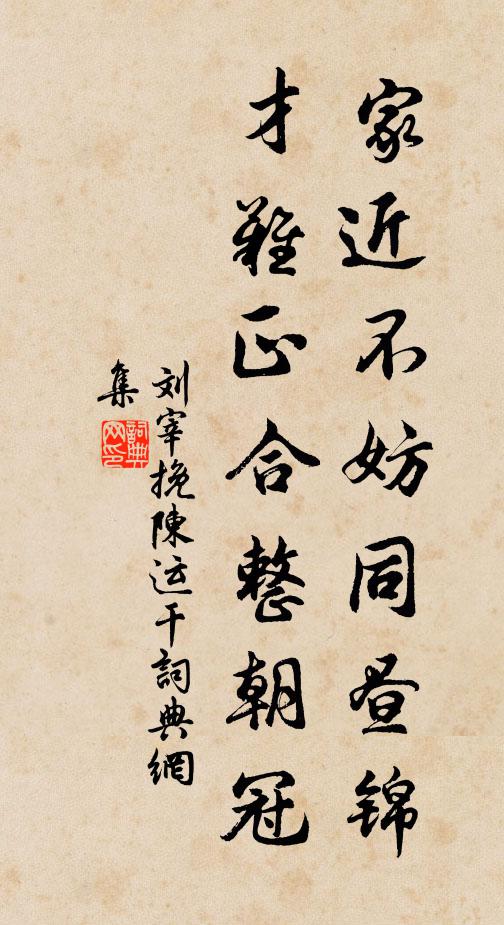 家近不妨同昼锦
才难正合整朝冠
刘宰挽陳运干詞典網
集
詞典网印